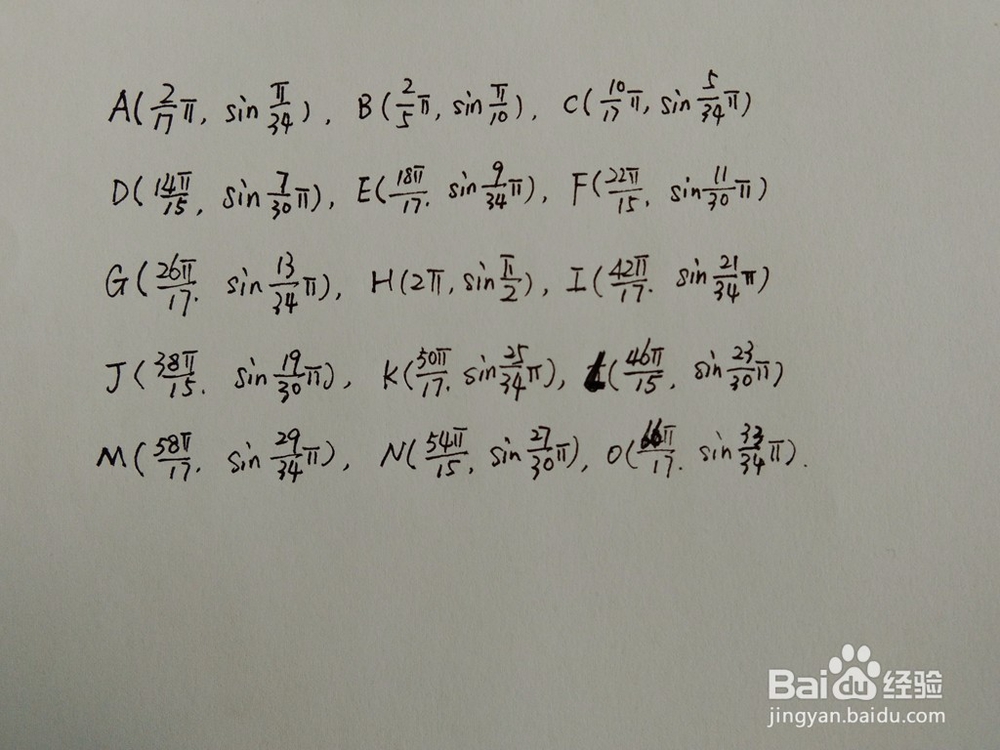 A(2/17 π, sin π/34), B(2/5 π, sin π/10), C(10/17 π, sin 5/34 π)
D(14π/15, sin 7/30 π), E(18π/17, sin 9/34 π), F(22π/15, sin 11/30 π)
G(26π/17, sin 13/34 π), H(2π, sin π/2), I(42π/17, sin 21/34 π)
J(38π/15, sin 19/30 π), K(50π/17, sin 25/34 π), L(46π/15, sin 23/30 π)
M(58π/17, sin 29/34 π), N(54π/15, sin 27/30 π), O(66π/17, sin 33/34 π).
Baidu 经验
jingyan.baidu.com